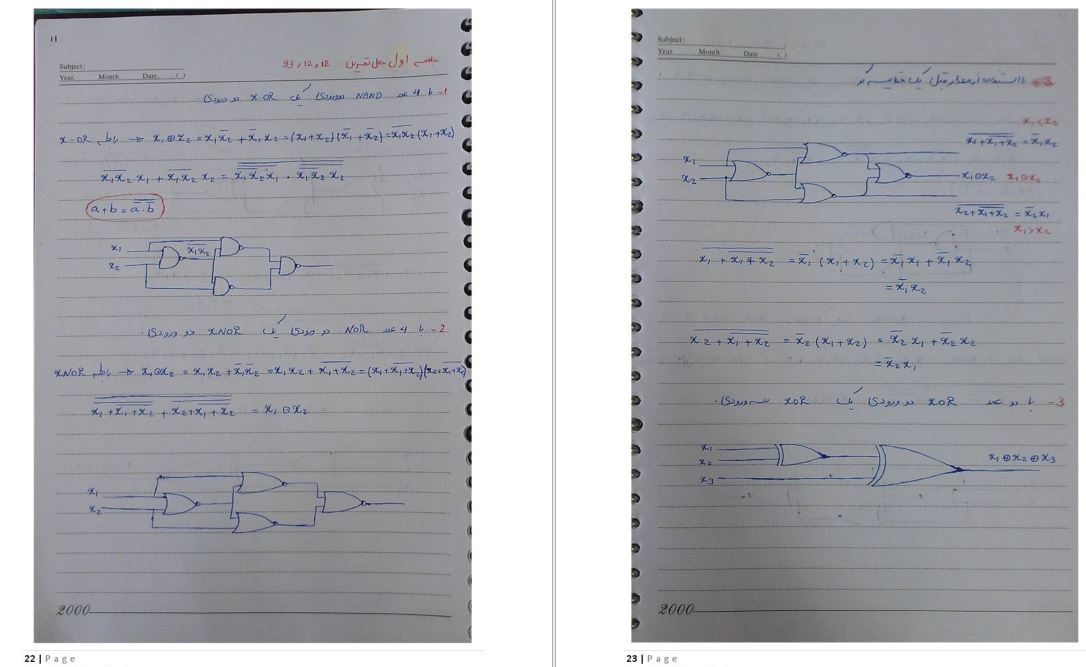 11
Subject:
Year. Month. Date. ( )
جلسه اول حل تمرین 93,12,12
1- با 4 عدد NAND دو ورودی یک X-OR دو ورودی.
x-OR رابطه → x₁⊕x₂ = x₁x̄₂ + x̄₁x₂ = (x₁+x₂)(x̄₁+x̄₂) = \overline{x₁x₂}(x₁+x₂)
a+b = \overline{ā·b̄}
x₁
\overline{x₁x₂}
x₂
2- با 4 عدد NOR دو ورودی یک XNOR دو ورودی.
xNOR رابطه → x₁⊙x₂ = x₁x₂ + x̄₁x̄₂ = x₁x₂ + \overline{x₁+x₂} = (x₁+\overline{x₁+x₂})(x₂+\overline{x₁+x₂})
\overline{\overline{x₁+\overline{x₁+x₂}} + \overline{x₂+\overline{x₁+x₂}}} = x₁⊙x₂
x₁
x₂
2000
22 | Page
Subject:
Year. Month. Date. ( )
3- با استفاده از مدار قبل یک مقایسه گر
x₁<x₂
\overline{x₁+\overline{x₁+x₂}} = x̄₁x₂
x₁
x₂
x₁⊙x₂
\overline{x₂+\overline{x₁+x₂}} = x̄₂x₁
x₁>x₂
\overline{x₁+\overline{x₁+x₂}} = x̄₁(x₁+x₂) = x̄₁x₁ + x̄₁x₂
= x̄₁x₂
\overline{x₂+\overline{x₁+x₂}} = x̄₂(x₁+x₂) = x̄₂x₁ + x̄₂x₂
= x̄₂x₁
3- با دو عدد XOR دو ورودی یک XOR سه ورودی.
x₁
x₂
x₃
x₁⊕x₂⊕x₃
2000
23 | Page